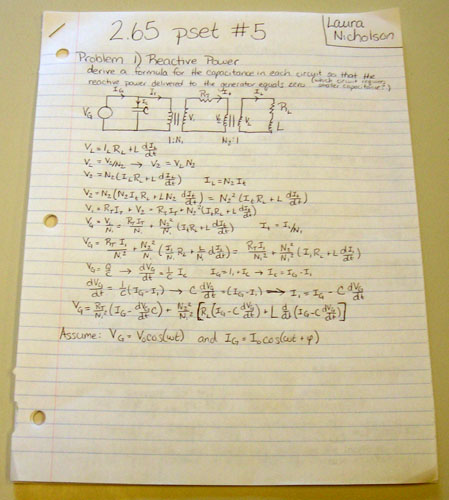 2.65 pset #5
Laura
Nicholson
Problem 1) Reactive Power
derive a formula for the capacitance in each circuit so that the
reactive power delivered to the generator equals zero. (which circuit requires
greater capacitance?)
I_G I_1 R_T I_t I_L
V_G C V_1 V_2 V_L R_L
L
1:N_1 N_2:1
V_L = I_L R_L + L dI_L/dt
V_L = V_2/N_2 → V_2 = V_L N_2
V_2 = N_2 (I_L R_L + L dI_L/dt) I_L = N_2 I_t
V_2 = N_2 (N_2 I_t R_L + L N_2 dI_t/dt) = N_2² (I_t R_L + L dI_t/dt)
V_1 = R_T I_T + V_2 = R_T I_T + N_2² (I_t R_L + L dI_t/dt)
V_G = V_1/N_1 = R_T I_T/N_1 + N_2²/N_1 (I_t R_L + L dI_t/dt) I_t = I_1/N_1
V_G = R_T I_1/N_1² + N_2²/N_1 (I_1/N_1 R_L + L/N_1 dI_1/dt) = R_T I_1/N_1² + N_2²/N_1² (I_1 R_L + L dI_1/dt)
V_G = Q/C → dV_G/dt = 1/C I_c I_G = I_1 + I_c → I_c = I_G - I_1
dV_G/dt = 1/C (I_G - I_1) → C dV_G/dt = (I_G - I_1) → I_1 = I_G - C dV_G/dt
V_G = R_T/N_1² (I_G - dV_G/dt C) + N_2²/N_1² [R_L (I_G - C dV_G/dt) + L d/dt (I_G - C dV_G/dt)]
Assume: V_G = V_0 cos(ωt) and I_G = I_0 cos(ωt + φ)